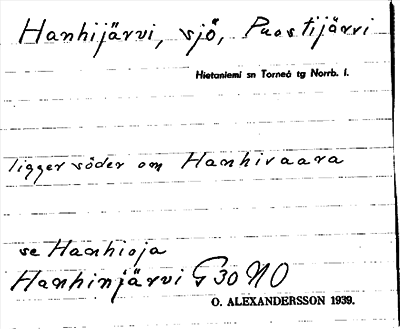 Hanhijärvi, sjö, Puostijärvi
Hietaniemi sn Torneå tg Norrb. l.
ligger söder om Hanhivaara
se Hanhioja
Hanhinjärvi G30 NO
O. ALEXANDERSSON 1939.